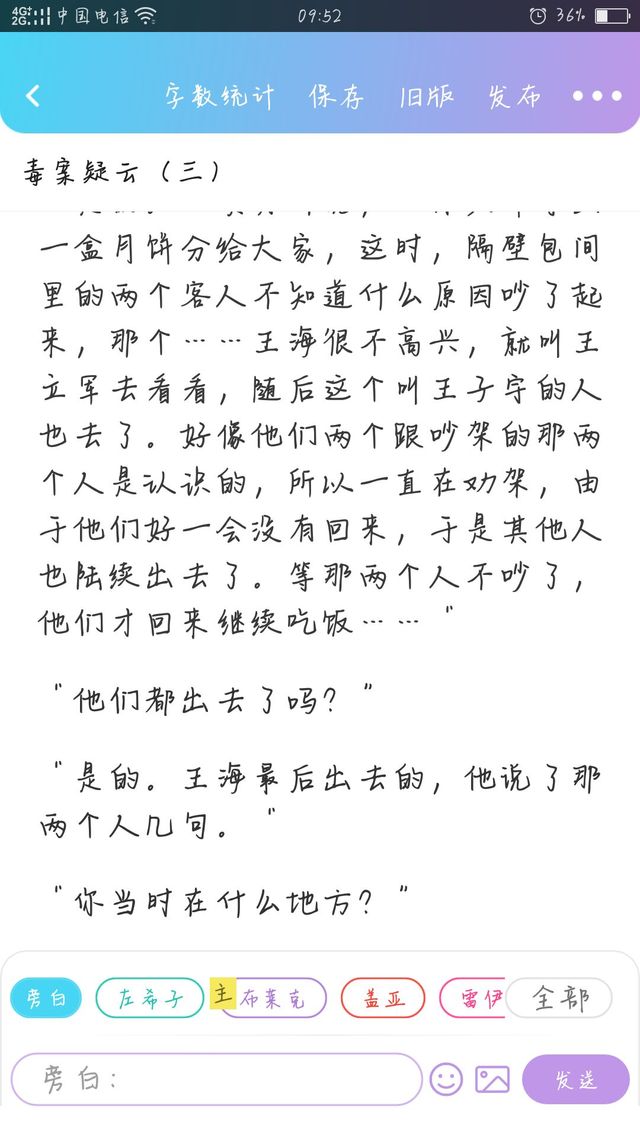 4G+ 2G 中国电信 09:52 36%
字数统计 保存 旧版 发布
毒案疑云（三）
一盒月饼分给大家，这时，隔壁包间
里的两个客人不知道什么原因吵了起
来，那个……王海很不高兴，就叫王
立军去看看，随后这个叫王子宇的人
也去了。好像他们两个跟吵架的那两
个人是认识的，所以一直在劝架，由
于他们好一会没有回来，于是其他人
也陆续出去了。等那两个人不吵了，
他们才回来继续吃饭……"
"他们都出去了吗？"
"是的。王海最后出去的，他说了那
两个人几句。"
"你当时在什么地方？"
旁白 左希子 主 布莱克 盖亚 雷伊 全部
旁白： 发送